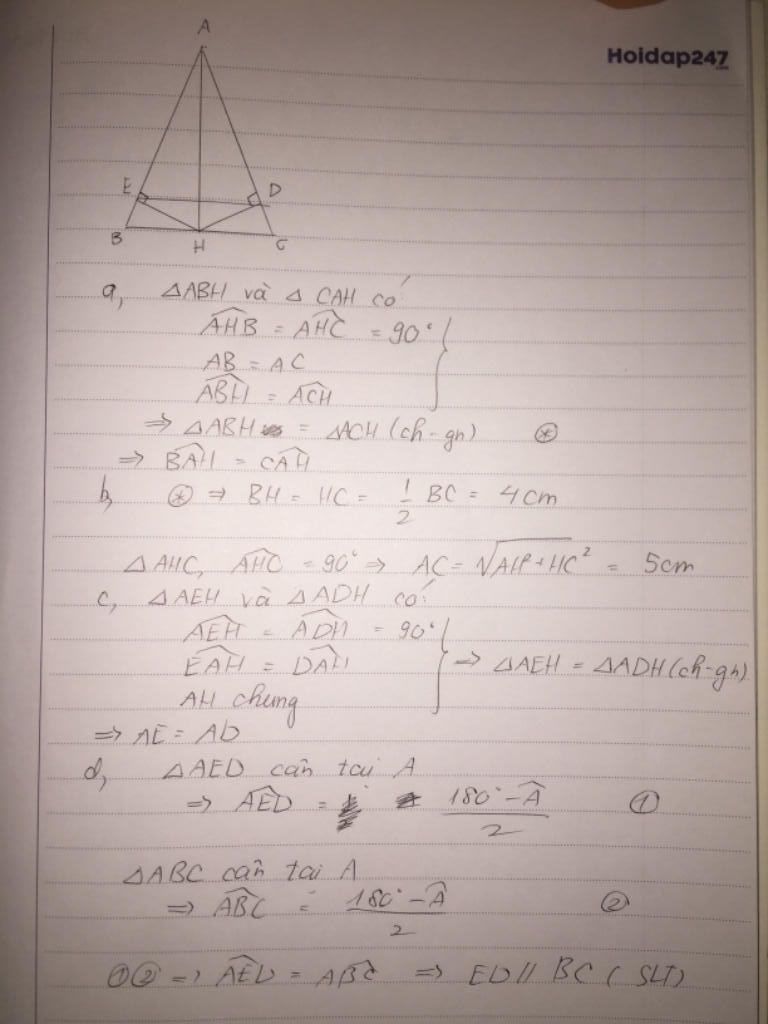 Hoidap247
.com
A
E
D
B
H
C
a, △ABH và △ CAH có
AHB = AHC = 90°
AB = AC
ABH = ACH
=> △ABH = △ACH (ch-gn) *
=> BAH = CAH
b, * => BH = HC = 1/2 BC = 4cm
△AHC, AHC = 90° => AC = √AH²+HC² = 5cm
c, △AEH và △ADH có:
AEH = ADH = 90°
EAH = DAH => △AEH = △ADH (ch-gn)
AH chung
=> AE = AD
d, △AED cân tai A
=> AED = 180° - A / 2 ①
△ABC cân tai A
=> ABC = 180° - A / 2 ②
①② => AED = ABC => ED // BC ( SLT)